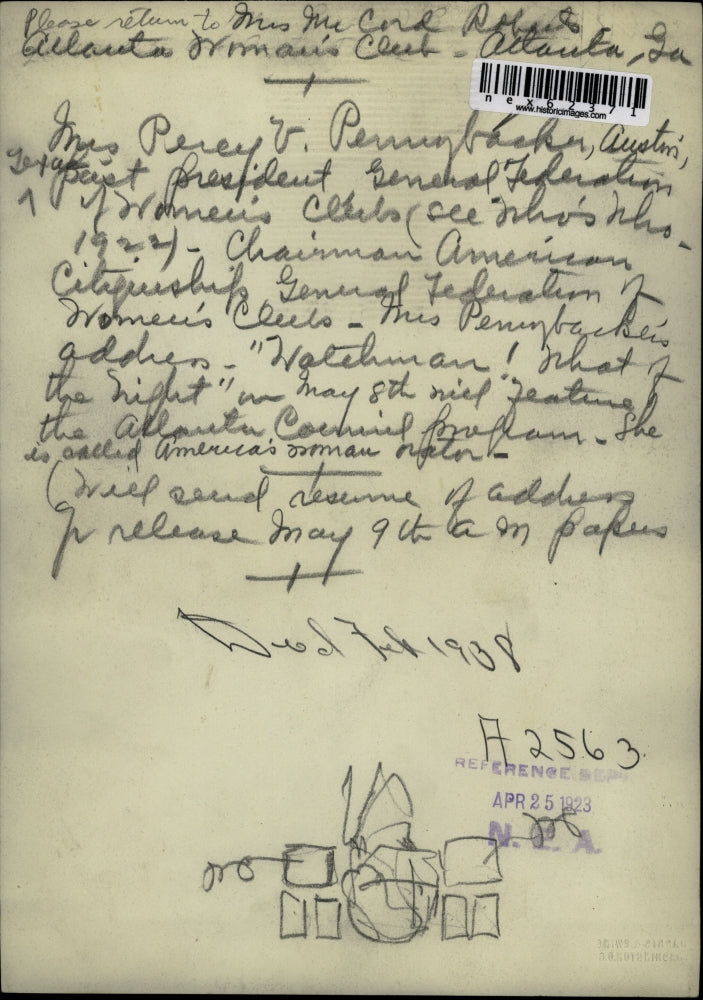 Please return to Mrs McCord Roberts
Atlanta Woman's Club - Atlanta, Ga
nex62371
www.historicimages.com
Mrs Percy V. Pennybacker, Austin,
Texas
past president General Federation
of Women's Clubs (see Who's Who -
1922) - Chairman American
Citizenship General Federation of
Women's Clubs - Mrs Pennybacker's
address - "Watchman! What of
the Night" on May 8th will feature
the Atlanta Council program - She
is called America's woman orator -
(Will send resume of address
for release May 9th A M papers
Died Feb 1938
A2563
REFERENCE DEPT
APR 25 1923
N. E. A.